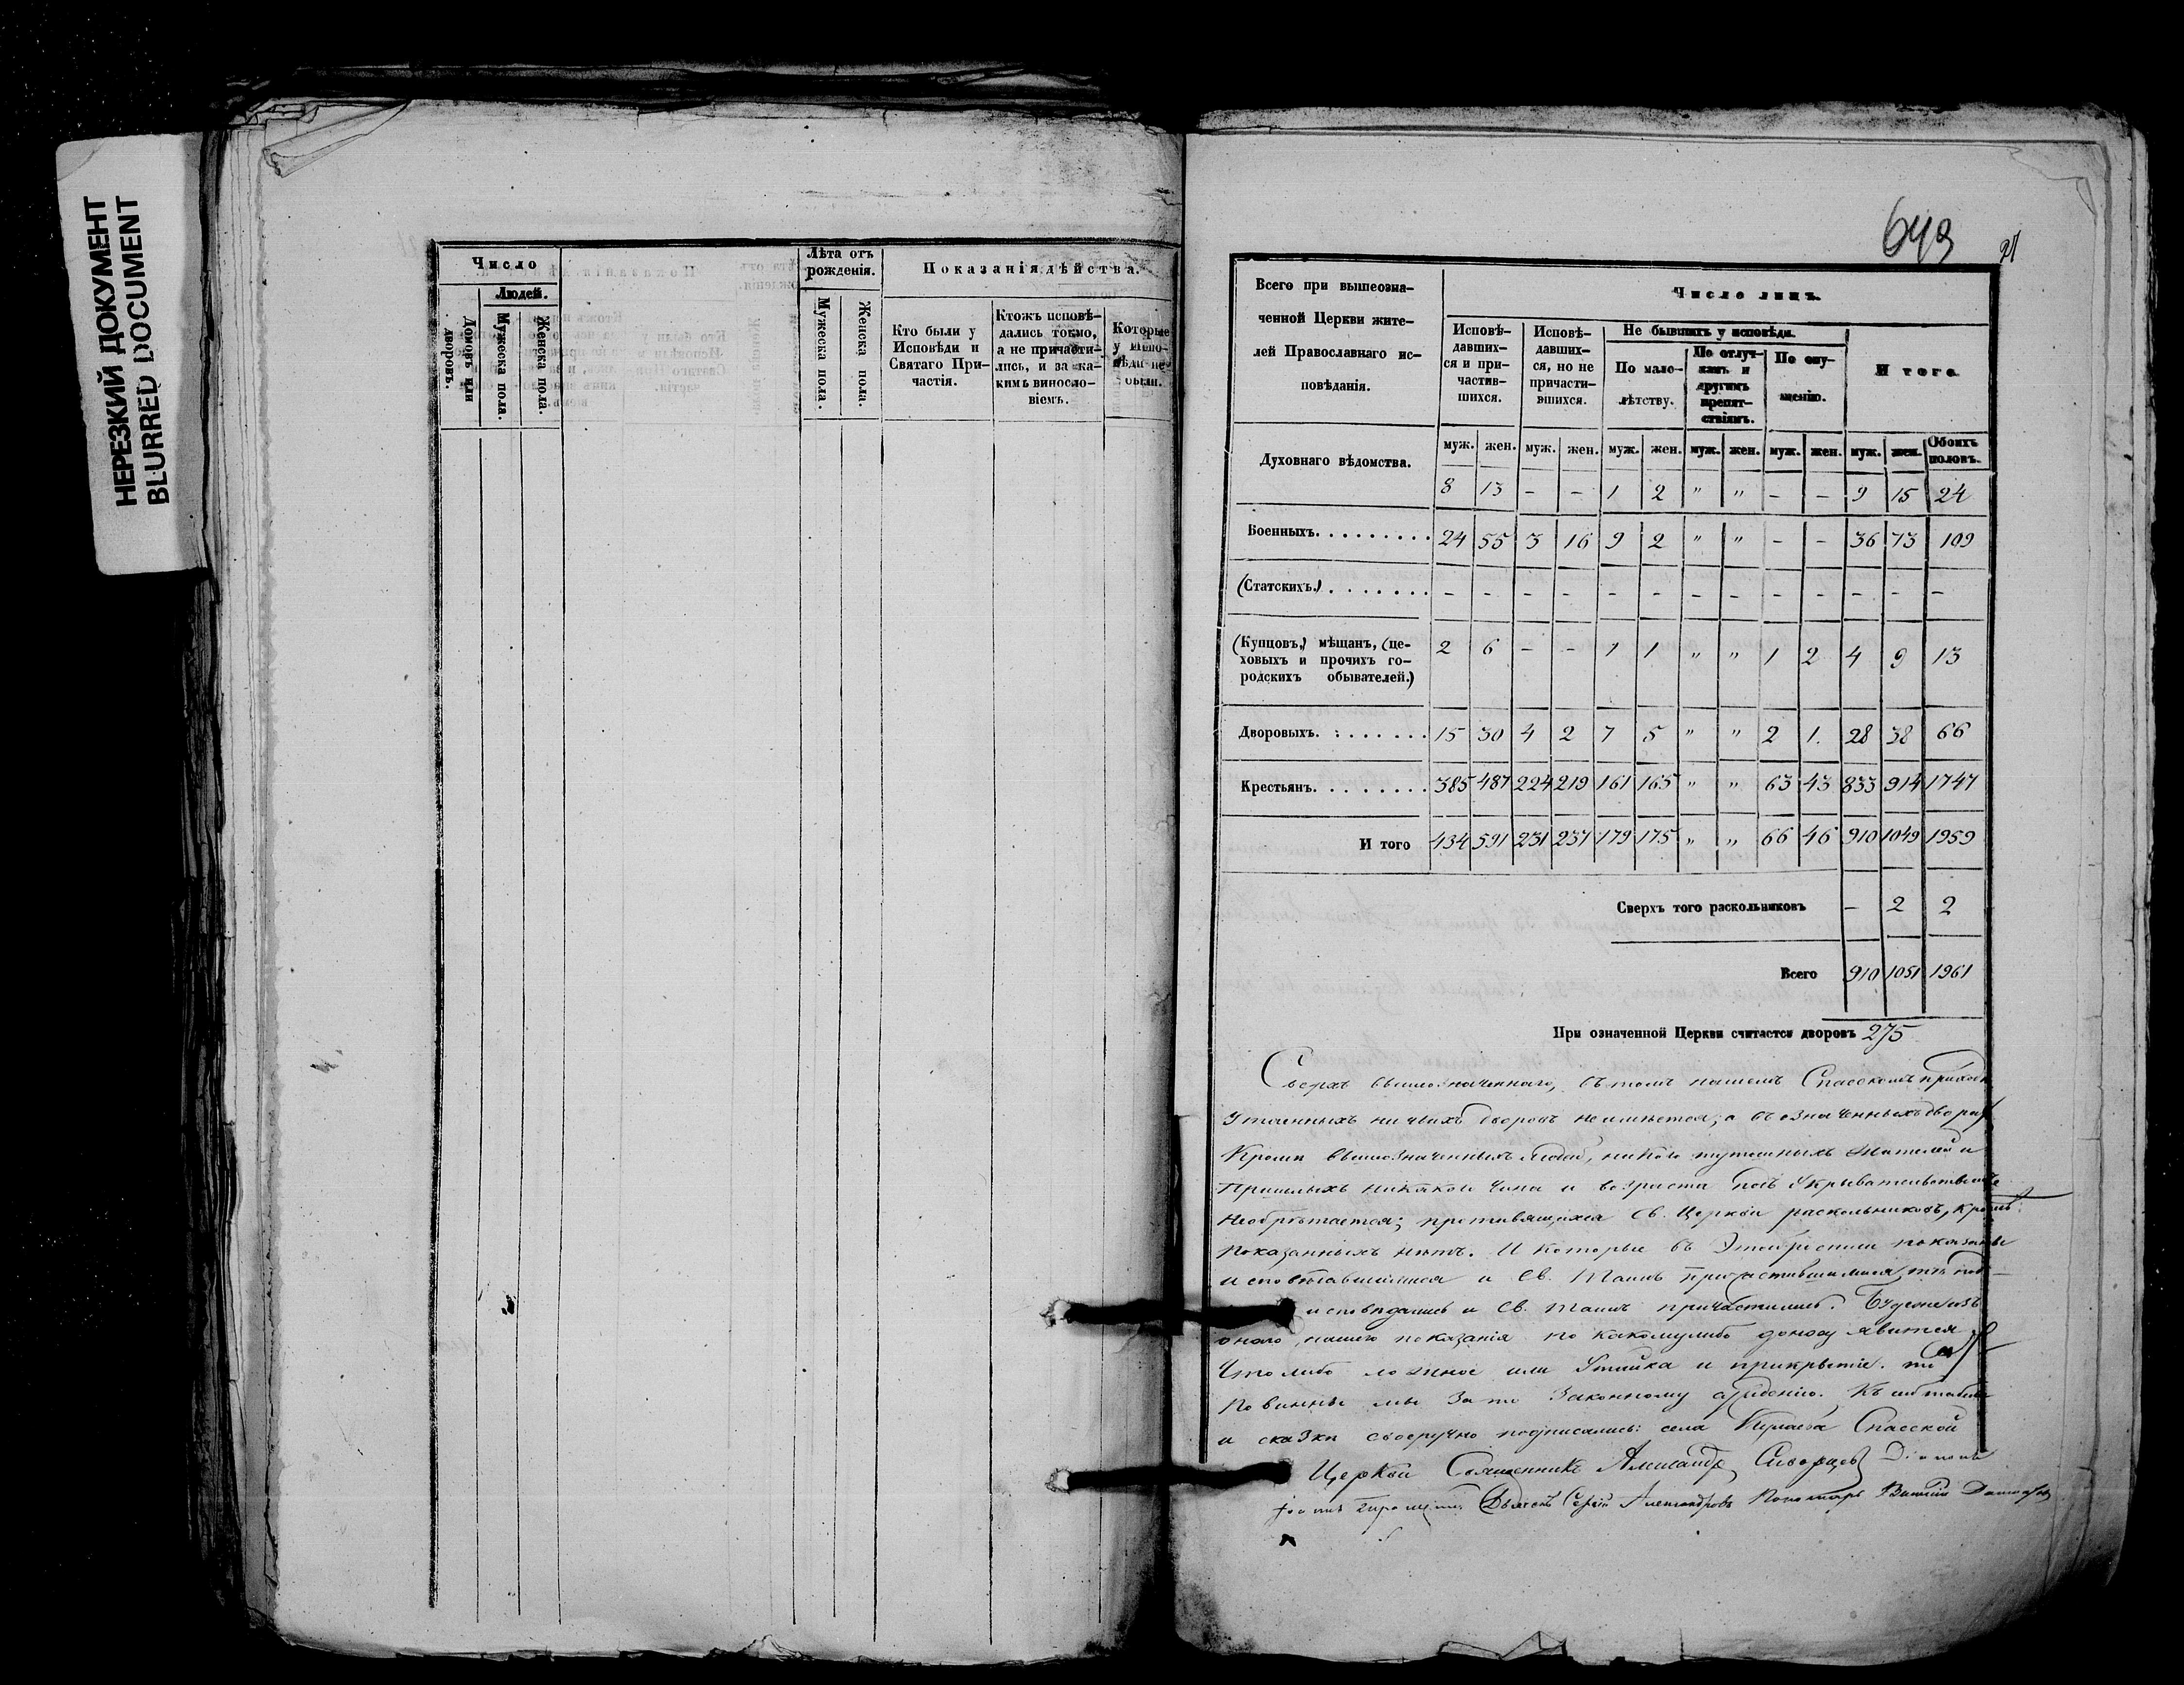 НЕРЕЗКИЙ ДОКУМЕНТ
BLURRED DOCUMENT
Число
Людей.
Домовъ или дворовъ.
Мужеска пола.
Женска пола.
Лѣта отъ рожденія.
Мужеска пола.
Женска пола.
Показанія дѣйства.
Кто были у
Исповѣди и
Святаго При-
частія.
Ктожъ исповѣ-
дались токмо,
а не причасти-
лись, и за ка-
кимъ виносло-
віемъ.
Которые
у Испо-
вѣди не
были.
649
Всего при вышеозна-
ченной Церкви жите-
лей Православнаго ис-
повѣданія.
Число лицъ.
Исповѣ-
давших-
ся и при-
частив-
шихся.
Исповѣ-
давших-
ся, но не
причасти-
вшихся.
Не бывшихъ у исповѣди.
По мало-
лѣтству.
По отлуч-
камъ и
другимъ
препят-
ствіямъ.
По опу-
щенію.
И того
муж. жен. муж. жен. муж. жен. муж. жен. муж. жен. муж. жен. Обоихъ половъ.
Духовнаго вѣдомства.
8 13 - - 1 2 " " - - 9 15 24
Военныхъ. 24 55 3 16 9 2 " " - - 36 73 109
(Статскихъ.) - - - - - - - - - - - - -
(Купцовъ,) мѣщанъ, (це-
ховыхъ и прочихъ го-
родскихъ обывателей.)
2 6 - - 1 1 " " 1 2 4 9 13
Дворовыхъ. 15 30 4 2 7 5 " " 2 1. 28 38 66
Крестьянъ. 385 487 224 219 161 165 " " 63 43 833 914 1747
И того 434 591 231 237 179 175 " " 66 46 910 1049 1959
Сверхъ того раскольниковъ - 2 2
Всего 910 1051 1961
При означенной Церкви считается дворовъ 275
Сверхъ вышеозначеннаго, въ томъ нашемъ Спасскомъ приходѣ
утаенныхъ ничьихъ дворовъ неимѣется; а въ означенныхъ дворахъ
Кромѣ вышеозначенныхъ людей, никого тутошныхъ жителей и
Пришлыхъ никакого чина и возраста подъ укрывательствомъ
необрѣтается; противящихся Св. Церкви раскольниковъ, кромѣ
показанныхъ нѣтъ. И которые въ этой росписи показаны
исповѣдавшимися и Св. Таинъ причастившимися, тѣ
исповѣдались и Св. Таинъ причастились. Будеже изъ
онаго нашего показанія по какомулибо доносу явится
Что либо ложное или утайка и прикрытіе. то
повинны мы за то законному сужденію. Къ сей
и сказки своеручно подписались: села Спасской
Церкви Священникъ Александръ
Дьячекъ Сергій Александровъ Пономарь